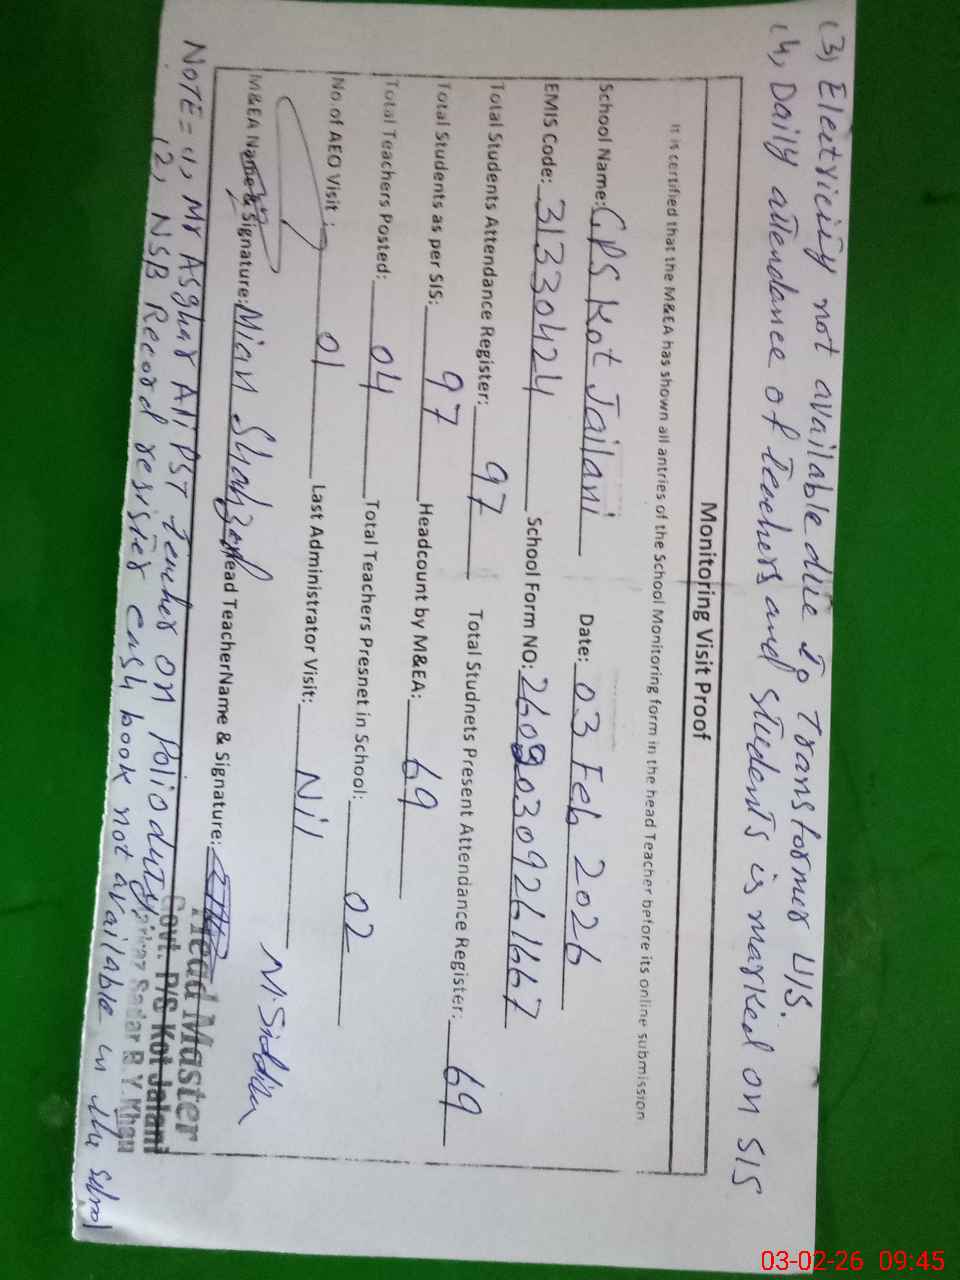 (3) Electricity not available due to Transformer U/S.
(4) Daily attendance of teachers and students is marked on SIS
Monitoring Visit Proof
It is certified that the M&EA has shown all antries of the School Monitoring form in the head Teacher before its online submission
School Name: GPS Kot Jailani Date: 03 Feb 2026
EMIS Code: 31330424 School Form NO: 
Total Students Attendance Register: 97 Total Studnets Present Attendance Register: 69
Total Students as per SIS: 97 Headcount by M&EA: 69
Total Teachers Posted: 04 Total Teachers Presnet in School: 02
No. of AEO Visit: 01 Last Administrator Visit: Nil
M&EA Name & Signature: Mian Head TeacherName & Signature: M. Siddiq
Head Master
Govt. P/S Kot Jalani
Sadar R.Y.Khan
NOTE = (1) Mr Asghar Ali PST teacher on Polio duty.
(2) NSB Record register cash book not available in the school
03-02-26 09:45